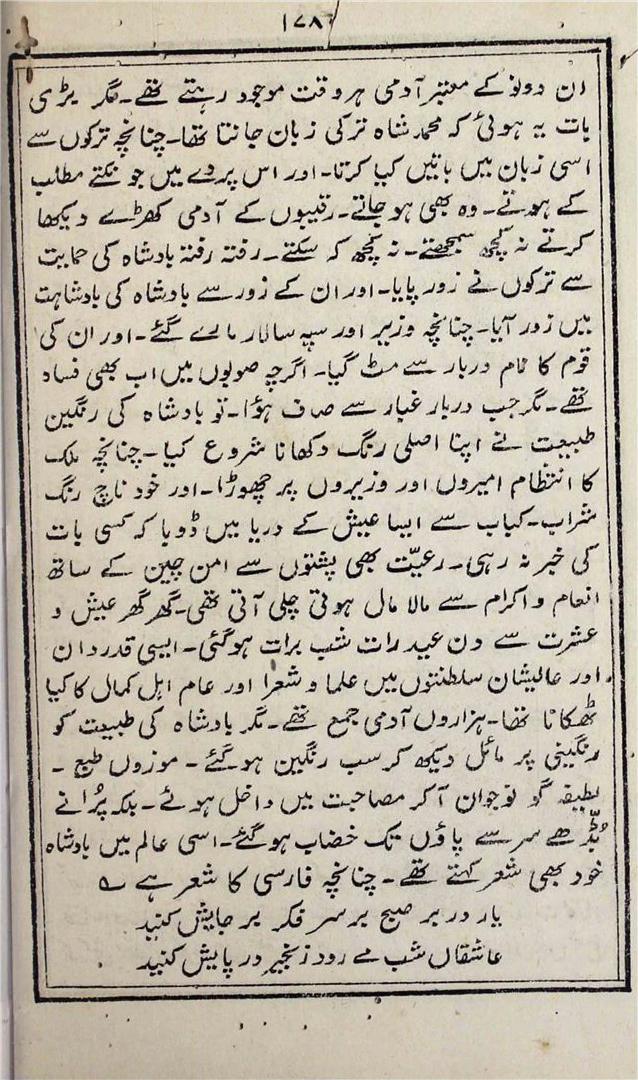 ۱۷۸
ان دونو کے معتبر آدمی ہر وقت موجود رہتے تھے۔ مگر بڑی
بات یہ ہوئی کہ محمد شاہ ترکی زبان جانتا تھا۔ چنانچہ ترکوں سے
اسی زبان میں باتیں کیا کرتا۔ اور اس پردے میں جو نکتے مطلب
کے ہوتے۔ وہ بھی ہو جاتے۔ رقیبوں کے آدمی کھڑے دیکھا
کرتے نہ کچھ سمجھتے۔ نہ کچھ کہ سکتے۔ رفتہ رفتہ بادشاہ کی حمایت
سے ترکوں نے زور پایا۔ اور ان کے زور سے بادشاہ کی بادشاہت
میں زور آیا۔ چنانچہ وزیر اور سپہ سالار مارے گئے۔ اور ان کی
قوم کا نام دربار سے مٹ گیا۔ اگرچہ صوبوں میں اب بھی فساد
تھے۔ مگر جب دربار غبار سے صاف ہؤا۔ تو بادشاہ کی رنگین
طبیعت نے اپنا اصلی رنگ دکھانا شروع کیا۔ چنانچہ ملک
کا انتظام امیروں اور وزیروں پر چھوڑا۔ اور خود ناچ رنگ
شراب۔ کباب سے ایسا عیش کے دریا میں ڈوبا کہ کسی بات
کی خبر نہ رہی۔ رعیّت بھی پشتوں سے امن چین کے ساتھ
انعام و اکرام سے مالا مال ہوتی چلی آتی تھی۔ گھر گھر عیش و
عشرت سے دن عید رات شب برات ہوگئی۔ ایسی قدردان
اور عالیشان سلطنتوں میں علما و شعرا اور عام اہل کمال کا کیا
ٹھکانا تھا۔ ہزاروں آدمی جمع تھے۔ مگر بادشاہ کی طبیعت کو
رنگینی پر مائل دیکھ کر سب رنگین ہو گئے۔ موزوں طبع۔
لطیفہ گو نوجوان آ کر مصاحبت میں داخل ہوئے۔ بلکہ پُرانے
بُڈّھے سر سے پاؤں تک خضاب ہو گئے۔ اسی عالم میں بادشاہ
خود بھی شعر کہتے تھے۔ چنانچہ فارسی کا شعر ہے ؎
یار در بر صبح بر سر فکر بر جایش کنید
عاشقاں شب مے رود زنجیر در پایش کنید